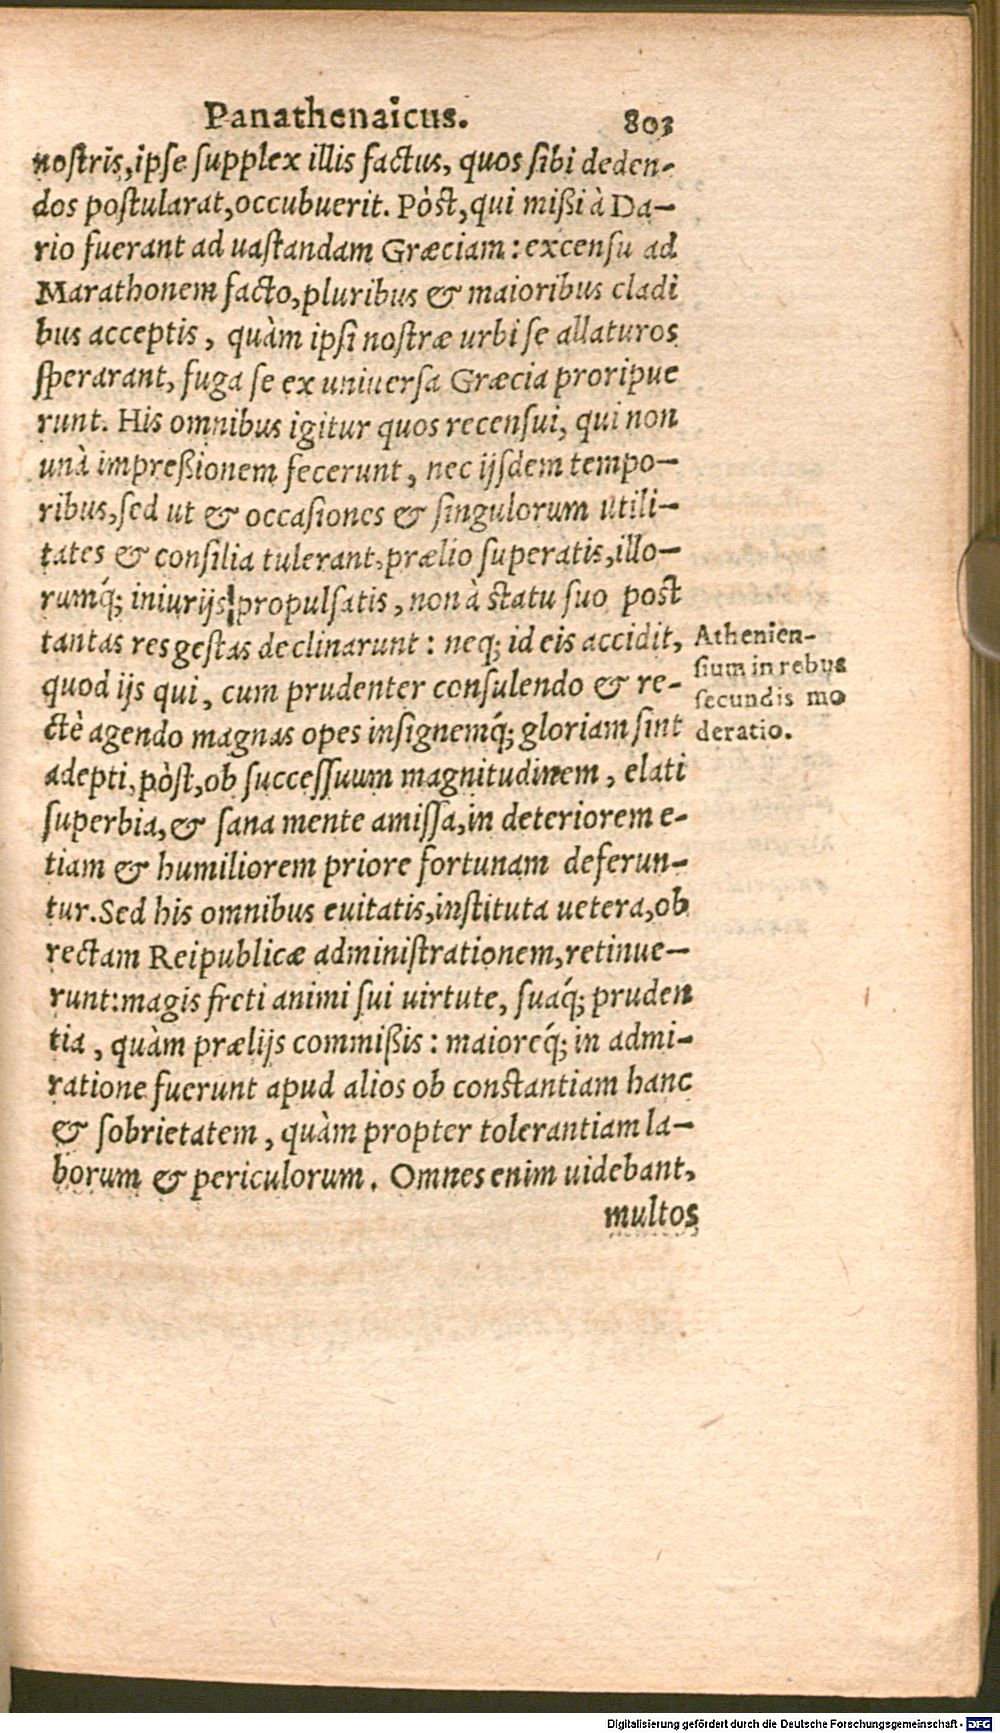 Panathenaicus. 803
nostris, ipse supplex illis factus, quos sibi deden-
dos postularat, occubuerit. Pòst, qui mißi à Da-
rio fuerant ad uastandam Græciam: excensu ad
Marathonem facto, pluribus & maioribus cladi
bus acceptis, quàm ipsi nostræ urbi se allaturos
sperarant, fuga se ex uniuersa Græcia proripue
runt. His omnibus igitur quos recensui, qui non
unà impreßionem fecerunt, nec ijsdem tempo-
ribus, sed ut & occasiones & singulorum utili-
tates & consilia tulerant, prælio superatis, illo-
rumq́; iniurijs propulsatis, non à statu suo post
tantas res gestas declinarunt: neq; id eis accidit,
quod ijs qui, cum prudenter consulendo & re-
ctè agendo magnas opes insignemq́; gloriam sint
adepti, pòst, ob successuum magnitudinem, elati
superbia, & sana mente amissa, in deteriorem e-
tiam & humiliorem priore fortunam deferun-
tur. Sed his omnibus euitatis, instituta uetera, ob
rectam Reipublicæ administrationem, retinue-
runt: magis freti animi sui uirtute, suaq́; pruden
tia, quàm prælijs commißis: maioreq́; in admi-
ratione fuerunt apud alios ob constantiam hanc
& sobrietatem, quàm propter tolerantiam la-
borum & periculorum. Omnes enim uidebant,
multos
Athenien-
sium in rebus
secundis mo
deratio.
Digitalisierung gefördert durch die Deutsche Forschungsgemeinschaft - DFG